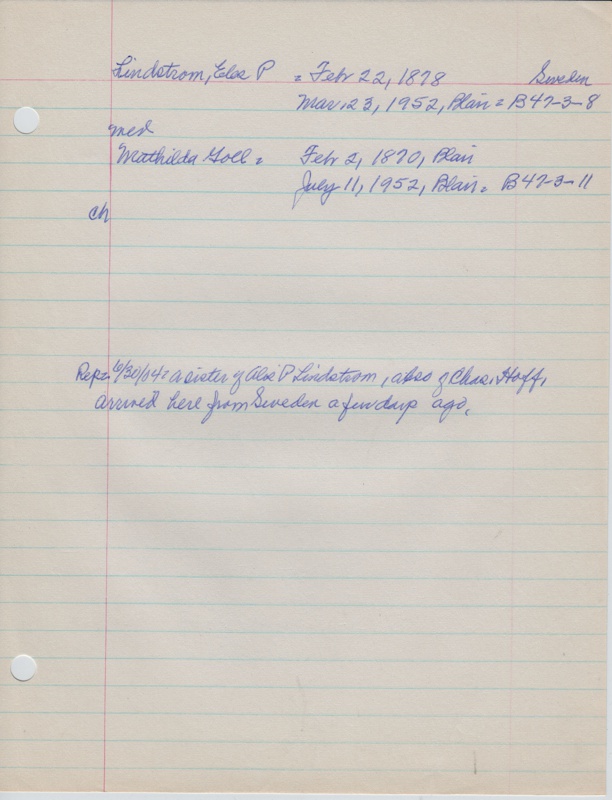 Lindstrom, P = Feb 22, 1878 Sweden
Mar. 23, 1952, Blair = B47-3-8
med
Mathilda = Feb 2, 1870, Blair
July 11, 1952, Blair = B47-3-11
ch
Rep = 6/30/04 = a sister of P Lindstrom, also of Chas. Hoff,
arrived here from Sweden a few days ago.